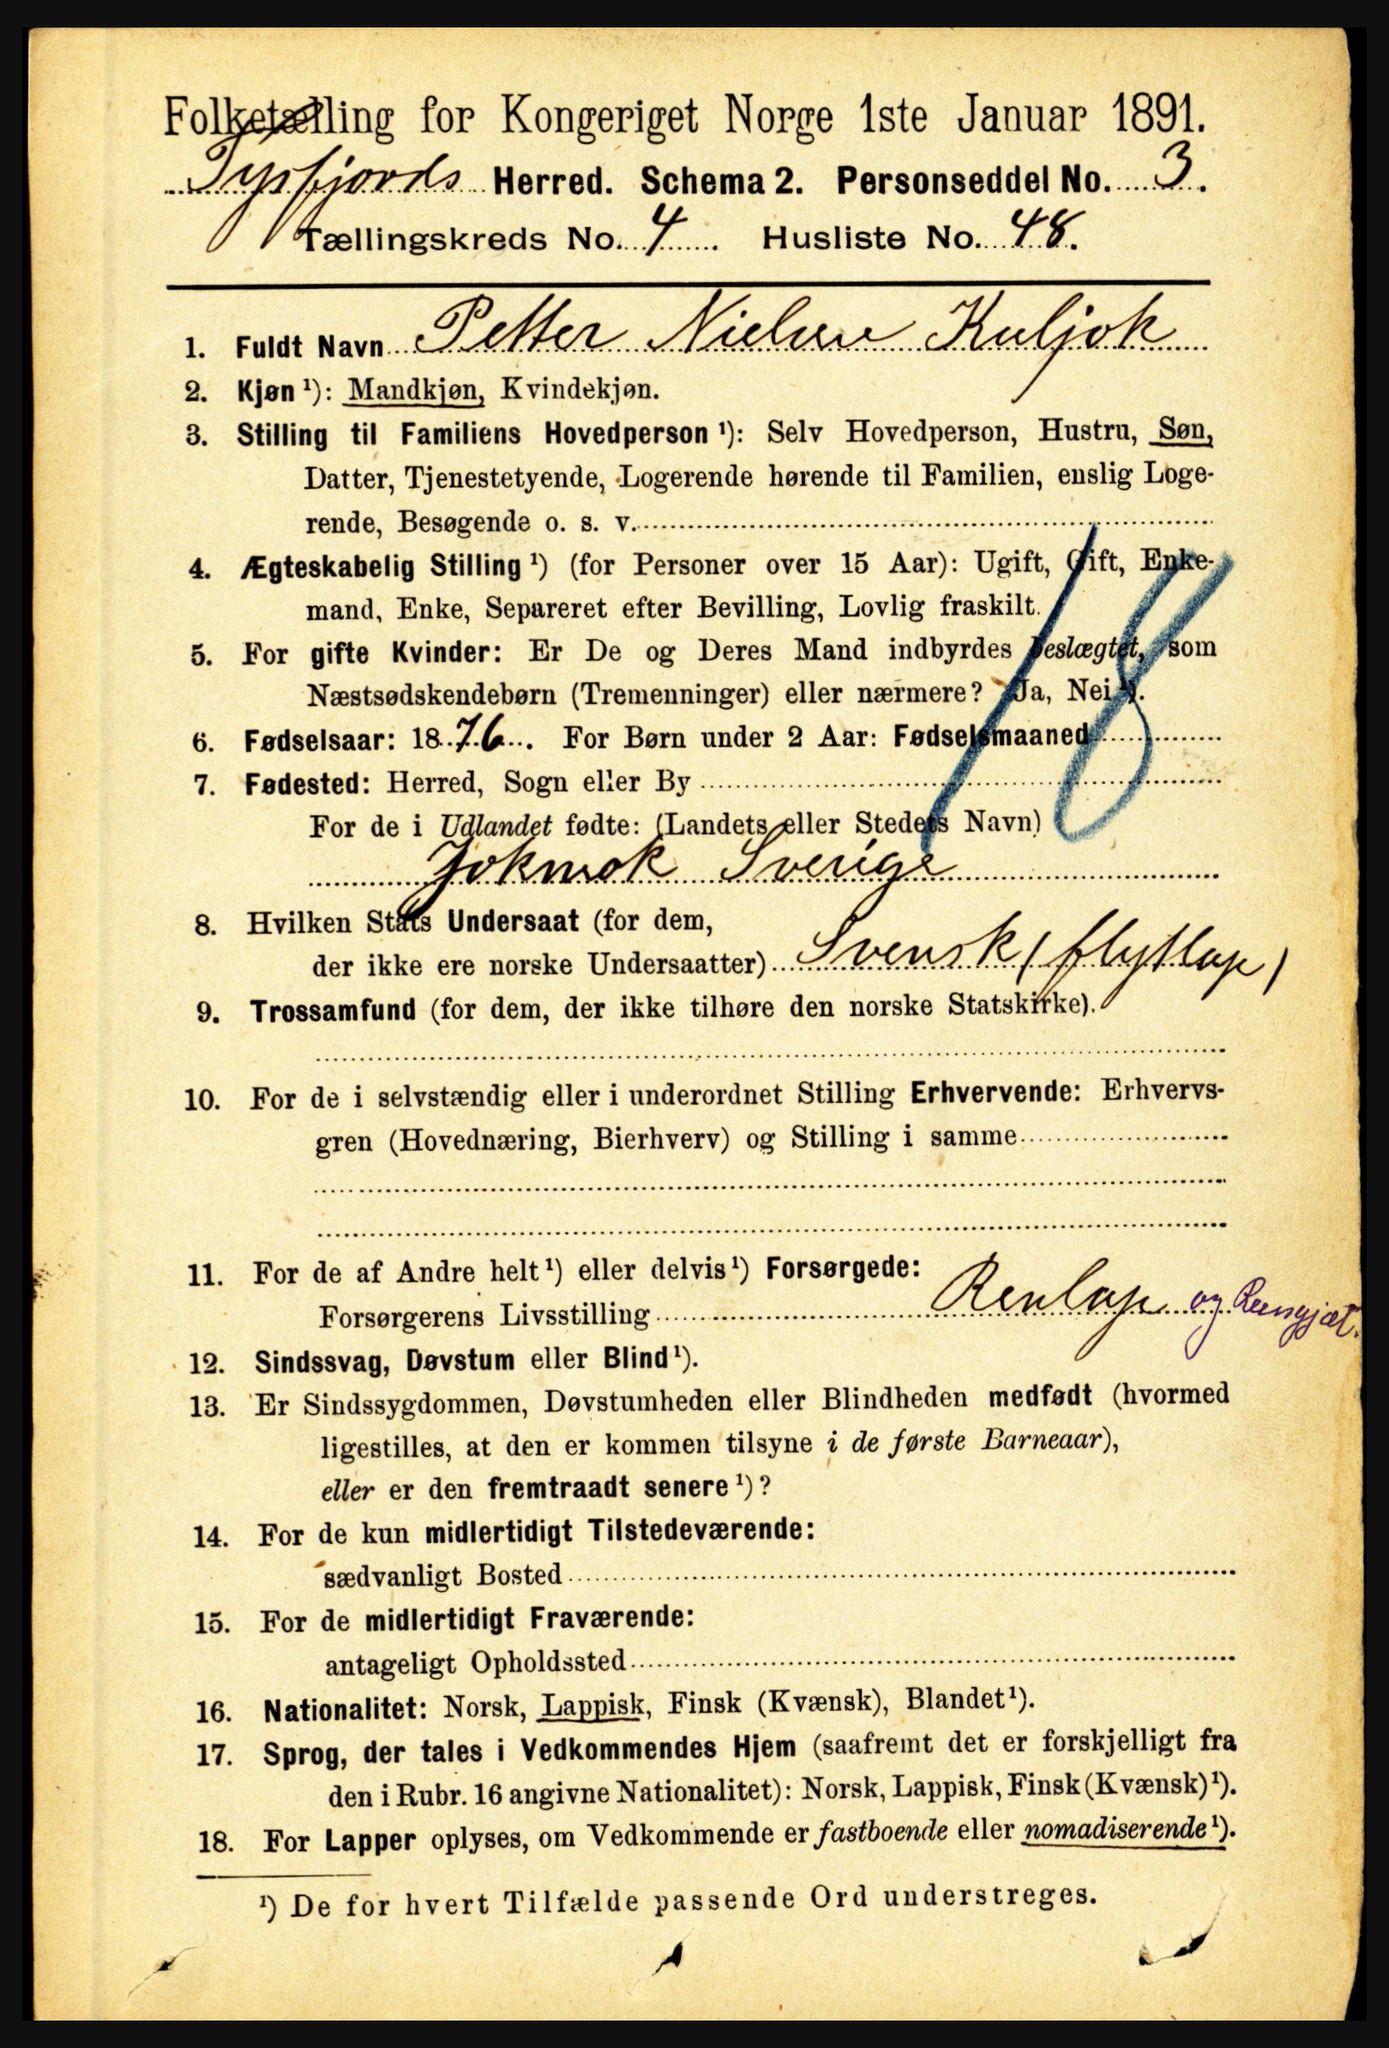 Folketælling for Kongeriget Norge 1ste Januar 1891.
Tysfjords Herred. Schema 2. Personseddel No. 3.
Tællingskreds No. 4 Husliste No. 48.
1. Fuldt Navn Petter Nielsen Kuljok
2. Kjøn ¹): Mandkjøn, Kvindekjøn.
3. Stilling til Familiens Hovedperson ¹): Selv Hovedperson, Hustru, Søn,
Datter, Tjenestetyende, Logerende hørende til Familien, enslig Loge-
rende, Besøgende o. s. v.
4. Ægteskabelig Stilling ¹) (for Personer over 15 Aar): Ugift, Gift, Enke-
mand, Enke, Separeret efter Bevilling, Lovlig fraskilt.
18
5. For gifte Kvinder: Er De og Deres Mand indbyrdes beslægtet, som
Næstsødskendebørn (Tremenninger) eller nærmere? Ja, Nei ¹).
6. Fødselsaar: 1876. For Børn under 2 Aar: Fødselsmaaned
7. Fødested: Herred, Sogn eller By
For de i Udlandet fødte: (Landets eller Stedets Navn)
Jokmok Sverige
8. Hvilken Stats Undersaat (for dem,
der ikke ere norske Undersaatter) Svensk (flytlap)
9. Trossamfund (for dem, der ikke tilhøre den norske Statskirke).
10. For de i selvstændig eller i underordnet Stilling Erhvervende: Erhvervs-
gren (Hovednæring, Bierhverv) og Stilling i samme
11. For de af Andre helt ¹) eller delvis ¹) Forsørgede:
Forsørgerens Livsstilling Renlap og Reensgjæt.
12. Sindssvag, Døvstum eller Blind ¹).
13. Er Sindssygdommen, Døvstumheden eller Blindheden medfødt (hvormed
ligestilles, at den er kommen tilsyne i de første Barneaar),
eller er den fremtraadt senere ¹)?
14. For de kun midlertidigt Tilstedeværende:
sædvanligt Bosted
15. For de midlertidigt Fraværende:
antageligt Opholdssted
16. Nationalitet: Norsk, Lappisk, Finsk (Kvænsk), Blandet ¹).
17. Sprog, der tales i Vedkommendes Hjem (saafremt det er forskjelligt fra
den i Rubr. 16 angivne Nationalitet): Norsk, Lappisk, Finsk (Kvænsk) ¹).
18. For Lapper oplyses, om Vedkommende er fastboende eller nomadiserende ¹).
¹) De for hvert Tilfælde passende Ord understreges.